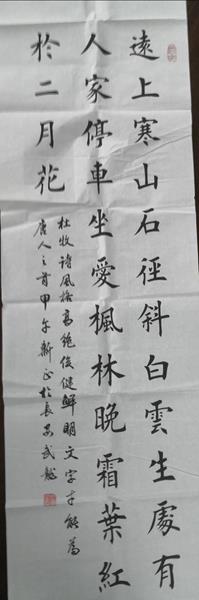 遠上寒山石徑斜白雲生處有
人家停車坐愛楓林晚霜葉紅
於二月花
杜牧詩風格高絶俊健鮮明文字才能為
唐人之首甲午新正於長安武龍